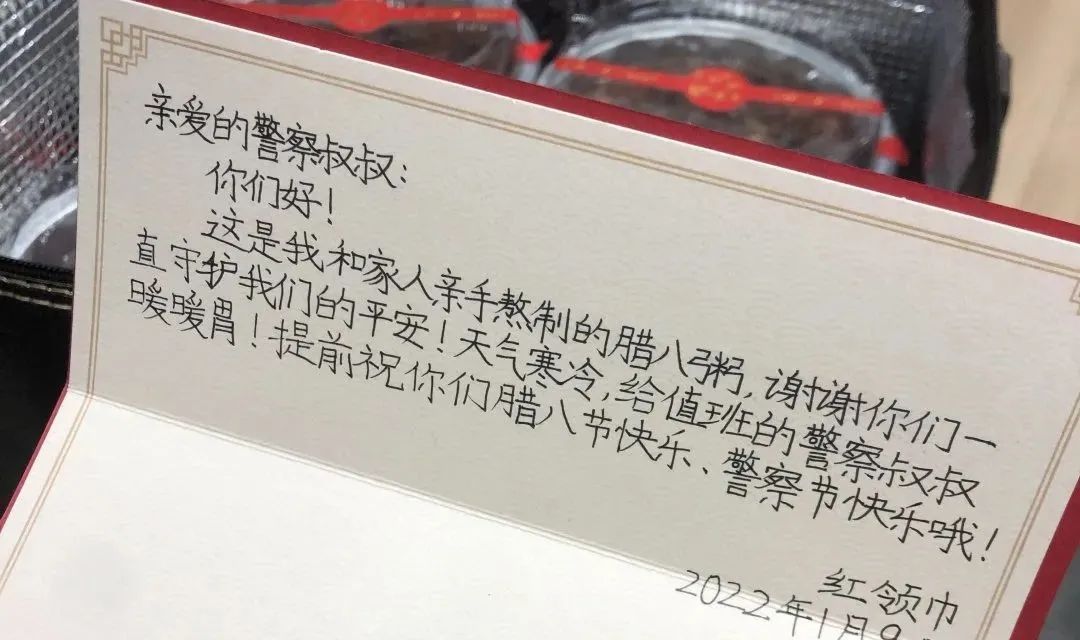 亲爱的警察叔叔:
你们好!
这是我和家人亲手熬制的腊八粥,谢谢你们一
直守护我们的平安!天气寒冷,给值班的警察叔叔
暖暖胃!提前祝你们腊八节快乐、警察节快乐哦!
红领巾
2022年1月9